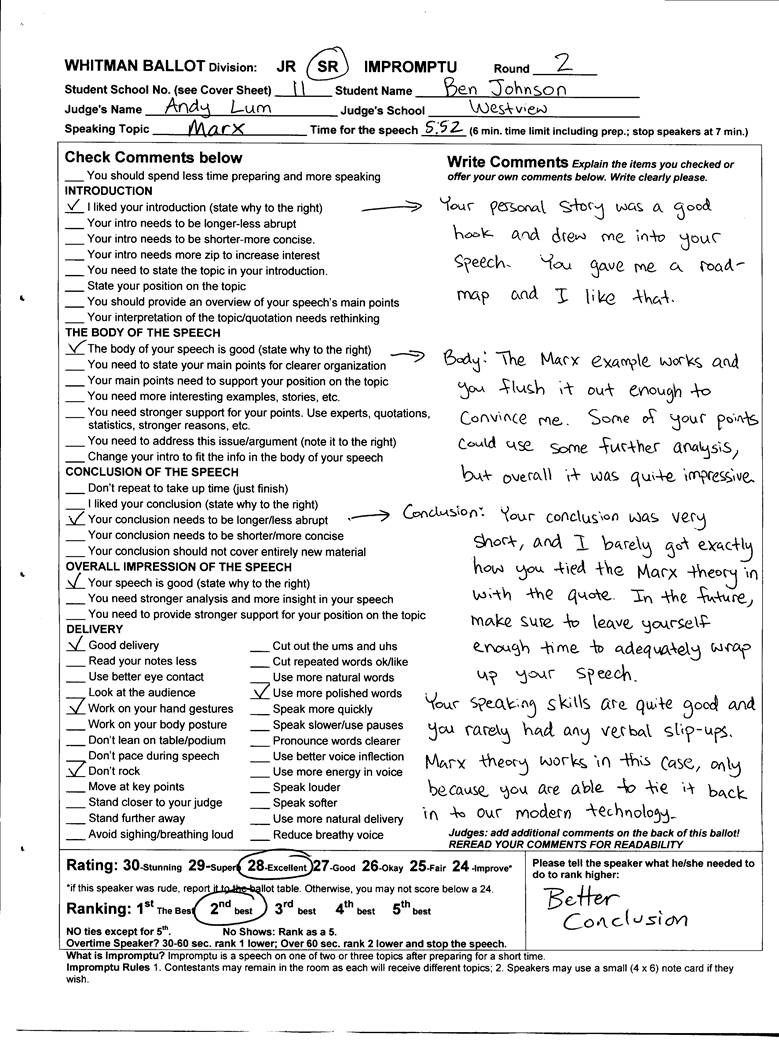 WHITMAN BALLOT Division: JR SR IMPROMPTU Round 2
Student School No. (see Cover Sheet) 11 Student Name Ben Johnson
Judge's Name Andy Lum Judge's School Westview
Speaking Topic Marx Time for the speech 5:52 (6 min. time limit including prep.; stop speakers at 7 min.)
Check Comments below
___ You should spend less time preparing and more speaking
INTRODUCTION
✓ I liked your introduction (state why to the right)
___ Your intro needs to be longer-less abrupt
___ Your intro needs to be shorter-more concise.
___ Your intro needs more zip to increase interest
___ You need to state the topic in your introduction.
___ State your position on the topic
___ You should provide an overview of your speech's main points
___ Your interpretation of the topic/quotation needs rethinking
THE BODY OF THE SPEECH
✓ The body of your speech is good (state why to the right)
___ You need to state your main points for clearer organization
___ Your main points need to support your position on the topic
___ You need more interesting examples, stories, etc.
___ You need stronger support for your points. Use experts, quotations,
statistics, stronger reasons, etc.
___ You need to address this issue/argument (note it to the right)
___ Change your intro to fit the info in the body of your speech
CONCLUSION OF THE SPEECH
___ Don't repeat to take up time (just finish)
___ I liked your conclusion (state why to the right)
✓ Your conclusion needs to be longer/less abrupt
___ Your conclusion needs to be shorter/more concise
___ Your conclusion should not cover entirely new material
OVERALL IMPRESSION OF THE SPEECH
✓ Your speech is good (state why to the right)
___ You need stronger analysis and more insight in your speech
___ You need to provide stronger support for your position on the topic
DELIVERY
✓ Good delivery ___ Cut out the ums and uhs
___ Read your notes less ___ Cut repeated words ok/like
___ Use better eye contact ___ Use more natural words
___ Look at the audience ✓ Use more polished words
✓ Work on your hand gestures ___ Speak more quickly
___ Work on your body posture ___ Speak slower/use pauses
___ Don't lean on table/podium ___ Pronounce words clearer
___ Don't pace during speech ___ Use better voice inflection
✓ Don't rock ___ Use more energy in voice
___ Move at key points ___ Speak louder
___ Stand closer to your judge ___ Speak softer
___ Stand further away ___ Use more natural delivery
___ Avoid sighing/breathing loud ___ Reduce breathy voice
Write Comments Explain the items you checked or
offer your own comments below. Write clearly please.
→ Your personal story was a good
hook and drew me into your
speech. You gave me a road-
map and I like that.
→ Body: The Marx example works and
you flush it out enough to
convince me. Some of your points
could use some further analysis,
but overall it was quite impressive
→ Conclusion: Your conclusion was very
short, and I barely got exactly
how you tied the Marx theory in
with the quote. In the future,
make sure to leave yourself
enough time to adequately wrap
up your speech.
Your speaking skills are quite good and
you rarely had any verbal slip-ups.
Marx theory works in this case, only
because you are able to tie it back
in to our modern technology.
Judges: add additional comments on the back of this ballot!
REREAD YOUR COMMENTS FOR READABILITY
Rating: 30-Stunning 29-Superb 28-Excellent 27-Good 26-Okay 25-Fair 24-Improve*
*if this speaker was rude, report it to the ballot table. Otherwise, you may not score below a 24.
Ranking: 1st The Best 2nd best 3rd best 4th best 5th best
NO ties except for 5th. No Shows: Rank as a 5.
Overtime Speaker? 30-60 sec. rank 1 lower; Over 60 sec. rank 2 lower and stop the speech.
Please tell the speaker what he/she needed to
do to rank higher:
Better
Conclusion
What is Impromptu? Impromptu is a speech on one of two or three topics after preparing for a short time.
Impromptu Rules 1. Contestants may remain in the room as each will receive different topics; 2. Speakers may use a small (4 x 6) note card if they
wish.